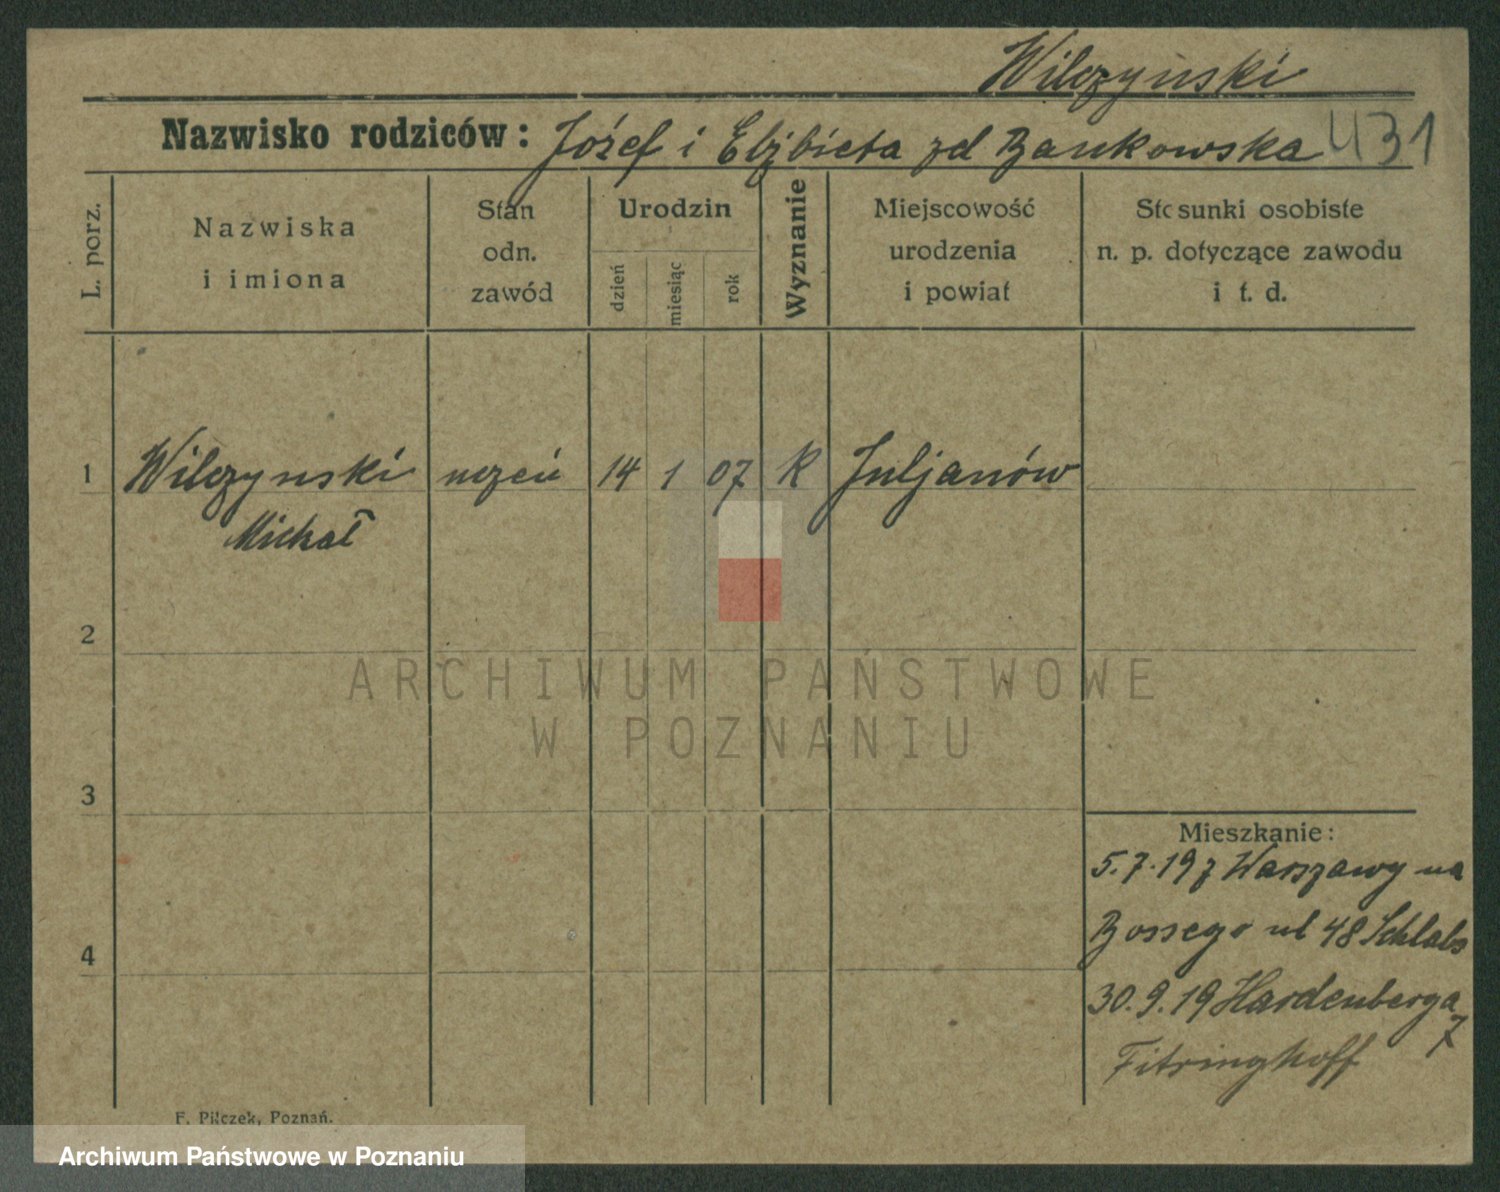 Wilczyński
Nazwisko rodziców: Józef i Elżbieta zd Bankowska 431
L. porz.
Nazwiska
i imiona
Stan
odn.
zawód
Urodzin
dzień
miesiąc
rok
Wyznanie
Miejscowość
urodzenia
i powiat
Stosunki osobiste
n. p. dotyczące zawodu
i t. d.
1 Wilczynski uczeń 14 1 07 K Juljanów
Michał
2
ARCHIWUM PAŃSTWOWE
W POZNANIU
3
Mieszkanie:
5.7.19 z Warszawy na
Bossego ul 48 Schlabs
4
30.9.19 Hardenberga
7
Fitringhoff
F. Pilczek, Poznań.
Archiwum Państwowe w Poznaniu